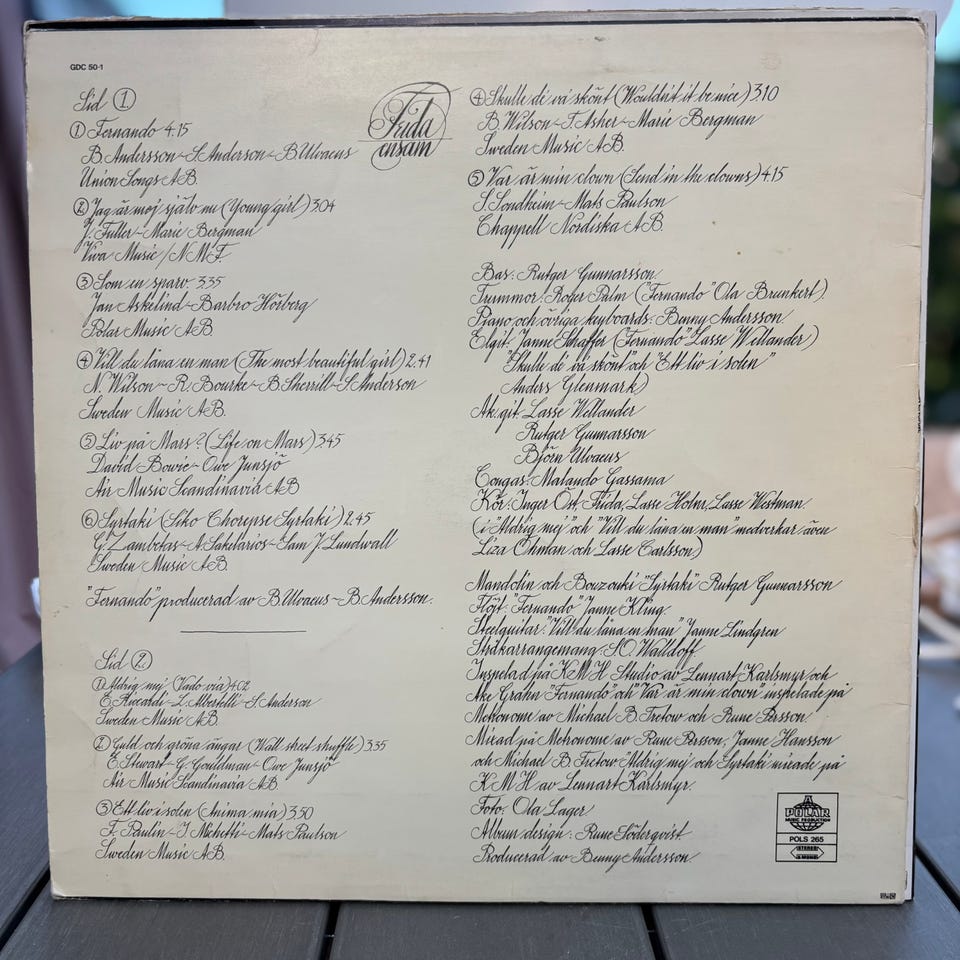 GDC 50-1
Frida
ensam
Sid 1
1 Fernando 4.15
B. Andersson - S. Anderson - B. Ulvaeus
Union Songs AB.
2 Jag är mej själv nu (Young girl) 3.04
J. Fuller - Marie Bergman
Viva Music / NMF
3 Som en sparv 3.35
Jan Askelind - Barbro Hörberg
Polar Music AB
4 Vill du låna en man (The most beautiful girl) 2.41
N. Wilson - R. Bourke - B. Sherrill - S. Anderson
Sweden Music AB.
5 Liv på Mars? (Life on Mars) 3.45
David Bowie - Owe Junsjö
Air Music Scandinavia AB
6 Syrtaki (Siko Chorepse Syrtaki) 2.45
G. Zambetas - A. Sakelarios - Sam J. Lundwall
Sweden Music AB.
"Fernando" producerad av B. Ulvaeus - B. Andersson.
Sid 2.
1 Aldrig mej (Vado via) 4.02
E. Riccardi - L. Albertelli - S. Anderson
Sweden Music AB.
2 Guld och gröna ängar (Wall street shuffle) 3.35
E. Stewart - G. Gouldman - Owe Junsjö
Air Music Scandinavia AB
3 Ett liv i solen (Anima mia) 3.50
F. Paulin - I. Michetti - Mats Paulson
Sweden Music AB.
4 Skulle de' va' skönt (Wouldn't it be nice) 3.10
B. Wilson - T. Asher - Marie Bergman
Sweden Music AB.
5 Var är min clown (Send in the clowns) 4.15
S. Sondheim - Mats Paulson
Chappell Nordiska AB.
Bas: Rutger Gunnarsson.
Trummor: Roger Palm ("Fernando" Ola Brunkert).
Piano och övriga keyboards: Benny Andersson.
Elgit: Janne Schaffer ("Fernando" Lasse Wellander)
"Skulle de' va' skönt" och "Ett liv i solen"
Anders Glenmark)
Ak.git: Lasse Wellander
Rutger Gunnarsson
Björn Ulvaeus
Congas: Malando Gassama
Kör: Inger Öst, Frida, Lasse Holm, Lasse Westman
(i "Aldrig mej" och "Vill du låna en man" medverkar även
Liza Öhman och Lasse Carlsson)
Mandolin och Bouzouki "Syrtaki" Rutger Gunnarsson
Flöjt: "Fernando" Janne Kling.
Steelguitar: "Vill du låna en man" Janne Lindgren
Stråkarrangemang: S.O. Walldoff
Inspelad på KMH Studio av Lennart Karlsmyr och
Åke Grahn "Fernando" och "Var är min clown" inspelade på
Metronome av Michael B. Tretow och Rune Persson.
Mixad på Metronome av Rune Persson, Janne Hansson
och Michael B. Tretow Aldrig mej och Syrtaki mixade på
KMH av Lennart Karlsmyr.
Foto: Ola Lager
Album design: Rune Söderqvist
Producerad av Benny Andersson
POLAR
MUSIC PRODUCTION
POLS 265
STEREO
MONO